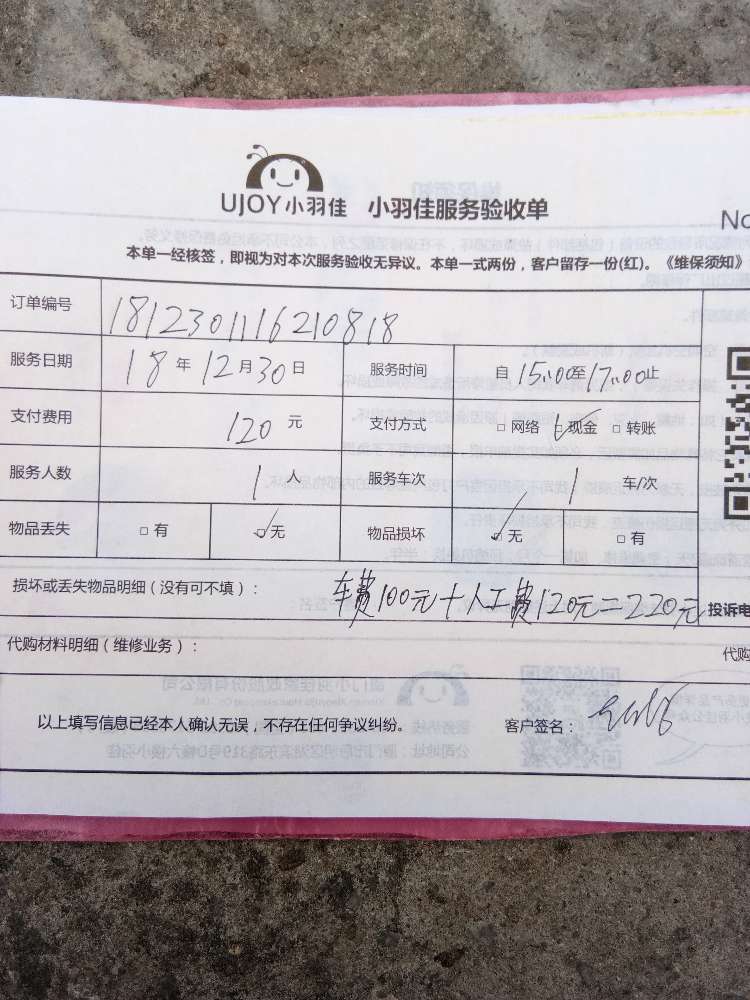 UJOY小羽佳 小羽佳服务验收单
No
本单一经核签，即视为对本次服务验收无异议。本单一式两份，客户留存一份(红)。《维保须知》
订单编号 1812301116210818
服务日期 18年12月30日 服务时间 自15:00至17:00止
支付费用 120元 支付方式 □网络 ☑现金 □转账
服务人数 1人 服务车次 1车/次
物品丢失 □有 ☑无 物品损坏 ☑无 □有
损坏或丢失物品明细（没有可不填）： 车费100元+人工费120元=220元
投诉电
代购材料明细（维修业务）：
代购
以上填写信息已经本人确认无误，不存在任何争议纠纷。 客户签名：